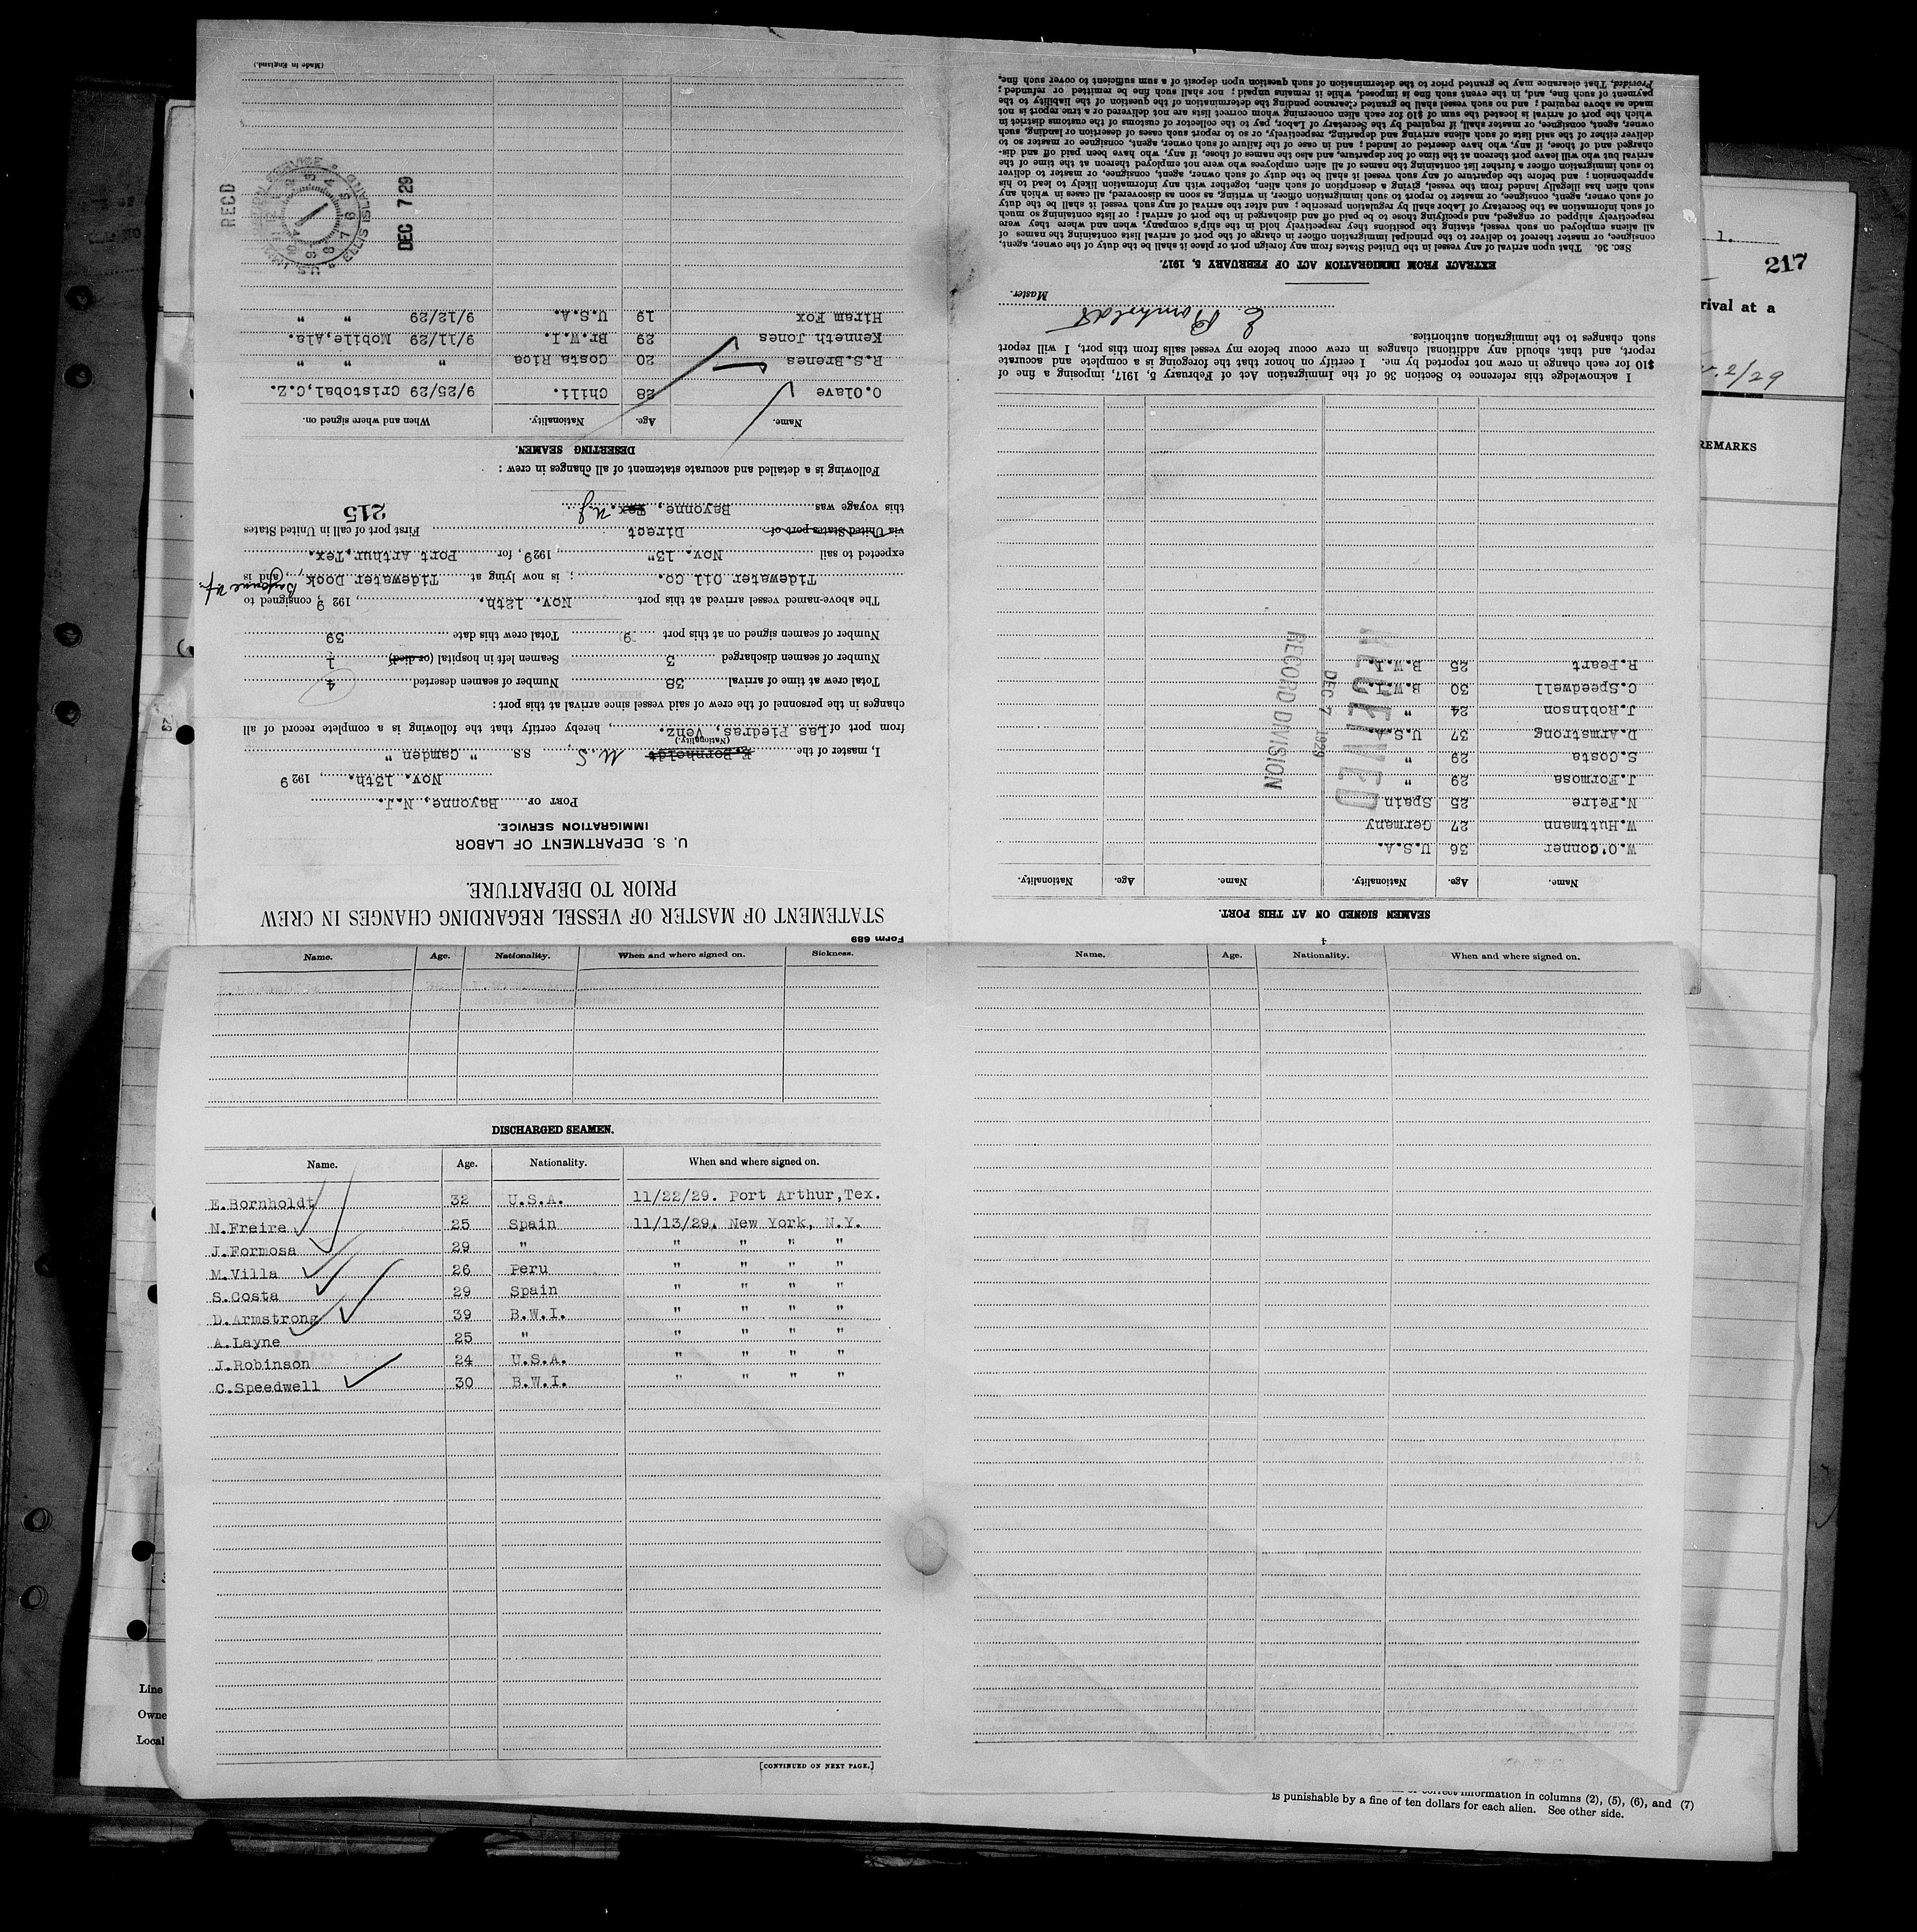 Form 689
STATEMENT OF MASTER OF VESSEL REGARDING CHANGES IN CREW
PRIOR TO DEPARTURE.
U. S. DEPARTMENT OF LABOR
IMMIGRATION SERVICE.
PORT OF Bayonne, N.J.
Nov. 13th., 1929
I, master of the E.Bornholdt U.S., ss " Camden "
(Nationality.)
from port of Las Piedras, Venz., hereby certify that the following is a complete record of all
changes in the personnel of the crew of said vessel since arrival at this port:
Total crew at time of arrival 38 Number of seamen deserted 4
Number of seamen discharged 3 Seamen left in hospital (or died) 1
Number of seamen signed on at this port 9 Total crew this date 39
The above-named vessel arrived at this port Nov. 12th., 1929, consigned to
Tidewater Oil Co. ; is now lying at Tidewater Dock, Bayonne N.J., and is
expected to sail Nov. 13", 1929, for Port Arthur,Tex.
via United States port of Direct First port of call in United States
this voyage was Bayonne, Tex. N.J.
215
Following is a detailed and accurate statement of all changes in crew:
DESERTING SEAMEN.
Name. Age. Nationality. When and where signed on.
O.Olave 28 Chili. 9/25/29 Cristobal,C.Z.
R.S.Brenes 20 Costa Rica " " "
Kenneth Jones 29 Br.W.I. 9/11/29 Mobile,Ala.
Hiram Fox 19 U.S.A. 9/12/29 " "
REC'D
DEC 7 29
U.S. IMMIGRATION SERVICE ELLIS ISLAND
(Made in England.)
SEAMEN SIGNED ON AT THIS PORT.
Name. Age. Nationality. Name. Age. Nationality.
W.O'Conner 36 U.S.A.
W.Huttmann 27 Germany
N.Feire 25 Spain
J.Formosa 29 "
S.Costa 29 "
D.Armstrong 37 U.S.A.
J.Robinson 24 "
C.Speedwell 30 B.W.I.
R.Peart 25 B.W.I.
RECEIVED
DEC 7 1929
RECORD DIVISION
I acknowledge this reference to Section 36 of the Immigration Act of February 5, 1917, imposing a fine of
$10 for each change in crew not reported by me. I certify on honor that the foregoing is a complete and accurate
report, and that, should any additional changes in crew occur before my vessel sails from this port, I will report
such changes to the immigration authorities.
E. Bornholdt
Master.
EXTRACT FROM IMMIGRATION ACT OF FEBRUARY 5, 1917.
SEC. 36. That upon arrival of any vessel in the United States from any foreign port or place it shall be the duty of the owner, agent,
consignee, or master thereof to deliver to the principal immigration officer in charge of the port of arrival lists containing the names of
all aliens employed on such vessel, stating the positions they respectively hold in the ship's company, when and where they were
respectively shipped or engaged, and specifying those to be paid off and discharged in the port of arrival; or lists containing so much
of such information as the Secretary of Labor shall by regulation prescribe; and after the arrival of any such vessel it shall be the duty
of such owner, agent, consignee, or master to report to such immigration officer, in writing, as soon as discovered, all cases in which any
such alien has illegally landed from the vessel, giving a description of such alien, together with any information likely to lead to his
apprehension; and before the departure of any such vessel it shall be the duty of such owner, agent, consignee, or master to deliver
to such immigration officer a further list containing the names of all alien employees who were not employed thereon at the time of the
arrival but who will leave port thereon at the time of her departure, and also the names of those, if any, who have been paid off and dis-
charged and of those, if any, who have deserted or landed; and in case of the failure of such owner, agent, consignee or master so to
deliver either of the said lists of such aliens arriving and departing, respectively, or so to report such cases of desertion or landing, such
owner, agent, consignee, or master shall, if required by the Secretary of Labor, pay to the collector of customs of the customs district in
which the port of arrival is located the sum of $10 for each alien concerning whom correct lists are not delivered or a true report is not
made as above required; and no such vessel shall be granted clearance pending the determination of the question of the liability to the
payment of such fine, and, in the event such fine is imposed, while it remains unpaid; nor shall such fine be remitted or refunded;
Provided, That clearance may be granted prior to the determination of such question upon deposit of a sum sufficient to cover such fine.
Name. Age. Nationality. When and where signed on. Sickness.
DISCHARGED SEAMEN.
Name. Age. Nationality. When and where signed on.
E.Bornholdt 32 U.S.A. 11/22/29. Port Arthur,Tex.
N.Freire 25 Spain 11/13/29. New York, N.Y.
J.Formosa 29 " " " " "
M.Villa 26 Peru " " " "
S.Costa 29 Spain " " " "
D.Armstrong 39 B.W.I. " " " "
A.Layne 25 " " " " "
J.Robinson 24 U.S.A. " " " "
C.Speedwell 30 B.W.I. " " " "
[CONTINUED ON NEXT PAGE.]
4
Name. Age. Nationality. When and where signed on.
1.
217
rival at a
2/29
REMARKS
Line
Owne
Local
information in columns (2), (5), (6), and (7)
is punishable by a fine of ten dollars for each alien. See other side.